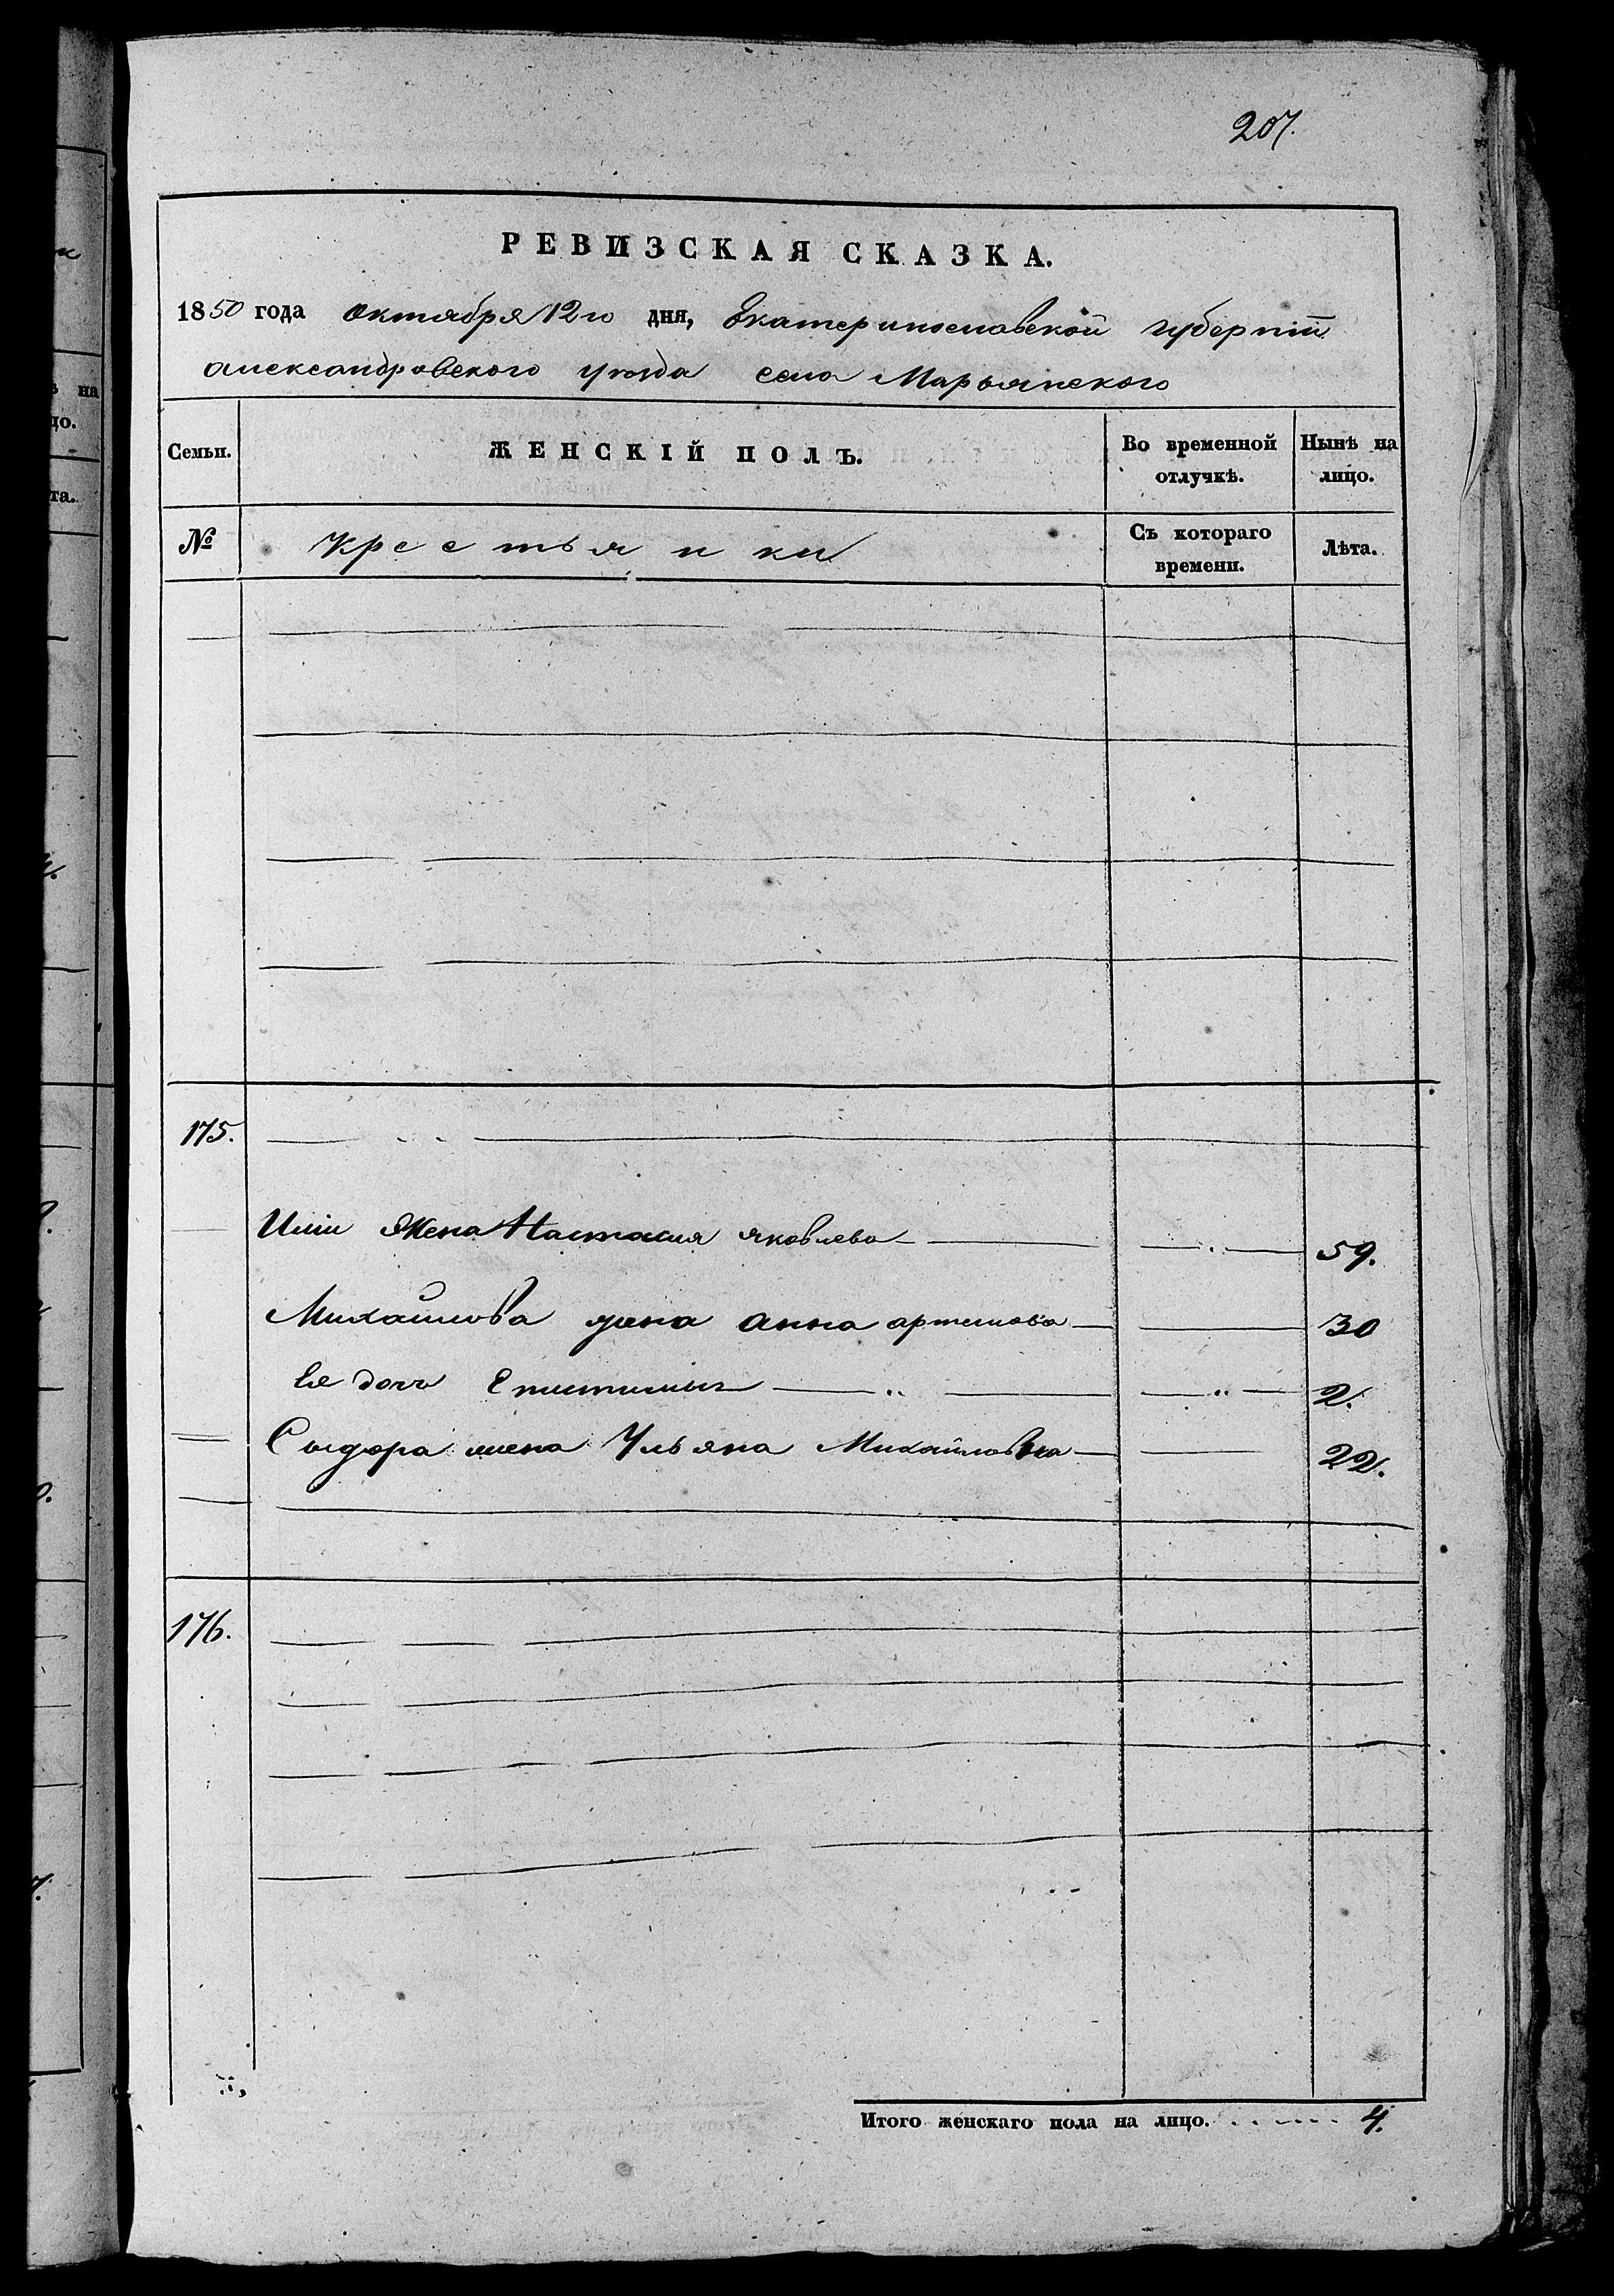 207.
РЕВИЗСКАЯ СКАЗКА.
1850 года октября 12го дня, Екатеринославской губерніи
александровского уезда села Марьянского
Семьи. ЖЕНСКІЙ ПОЛЪ. Во временной отлучкѣ. Нынѣ на лицо.
№ Крестьянки Съ котораго времени. Лѣта.
175.
Иліи Жена Настасия яковлева 59.
Михайлова жена анна артемова 30
Ея дочь Епистимия 2.
Сыдора жена Ульяна Михайловна 22.
176.
Итого женскаго пола на лицо. 4.